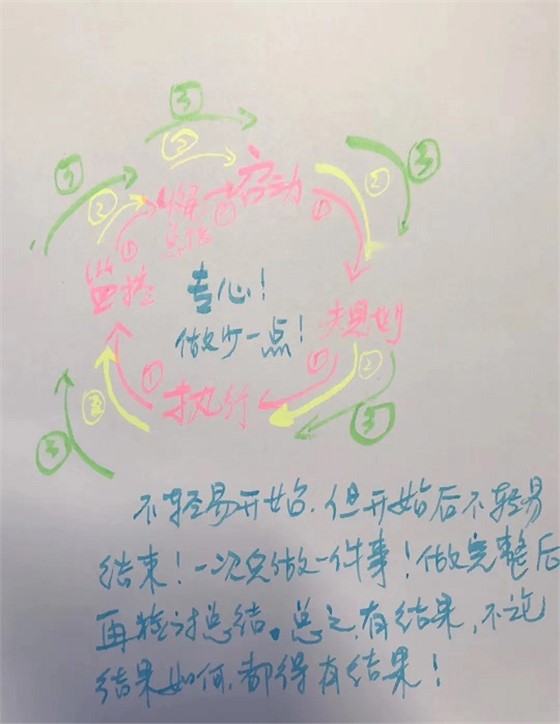 ③
③
②
③
②
启动
①
②
②
①
总结
①
监控
专心！
规划
做少一点！
①
②
①
②
执行
③
③
不轻易开始，但开始后不轻易
结束！一次只做一件事！做完整后
再检讨总结。总之，有结果，不论
结果如何，都得有结果！